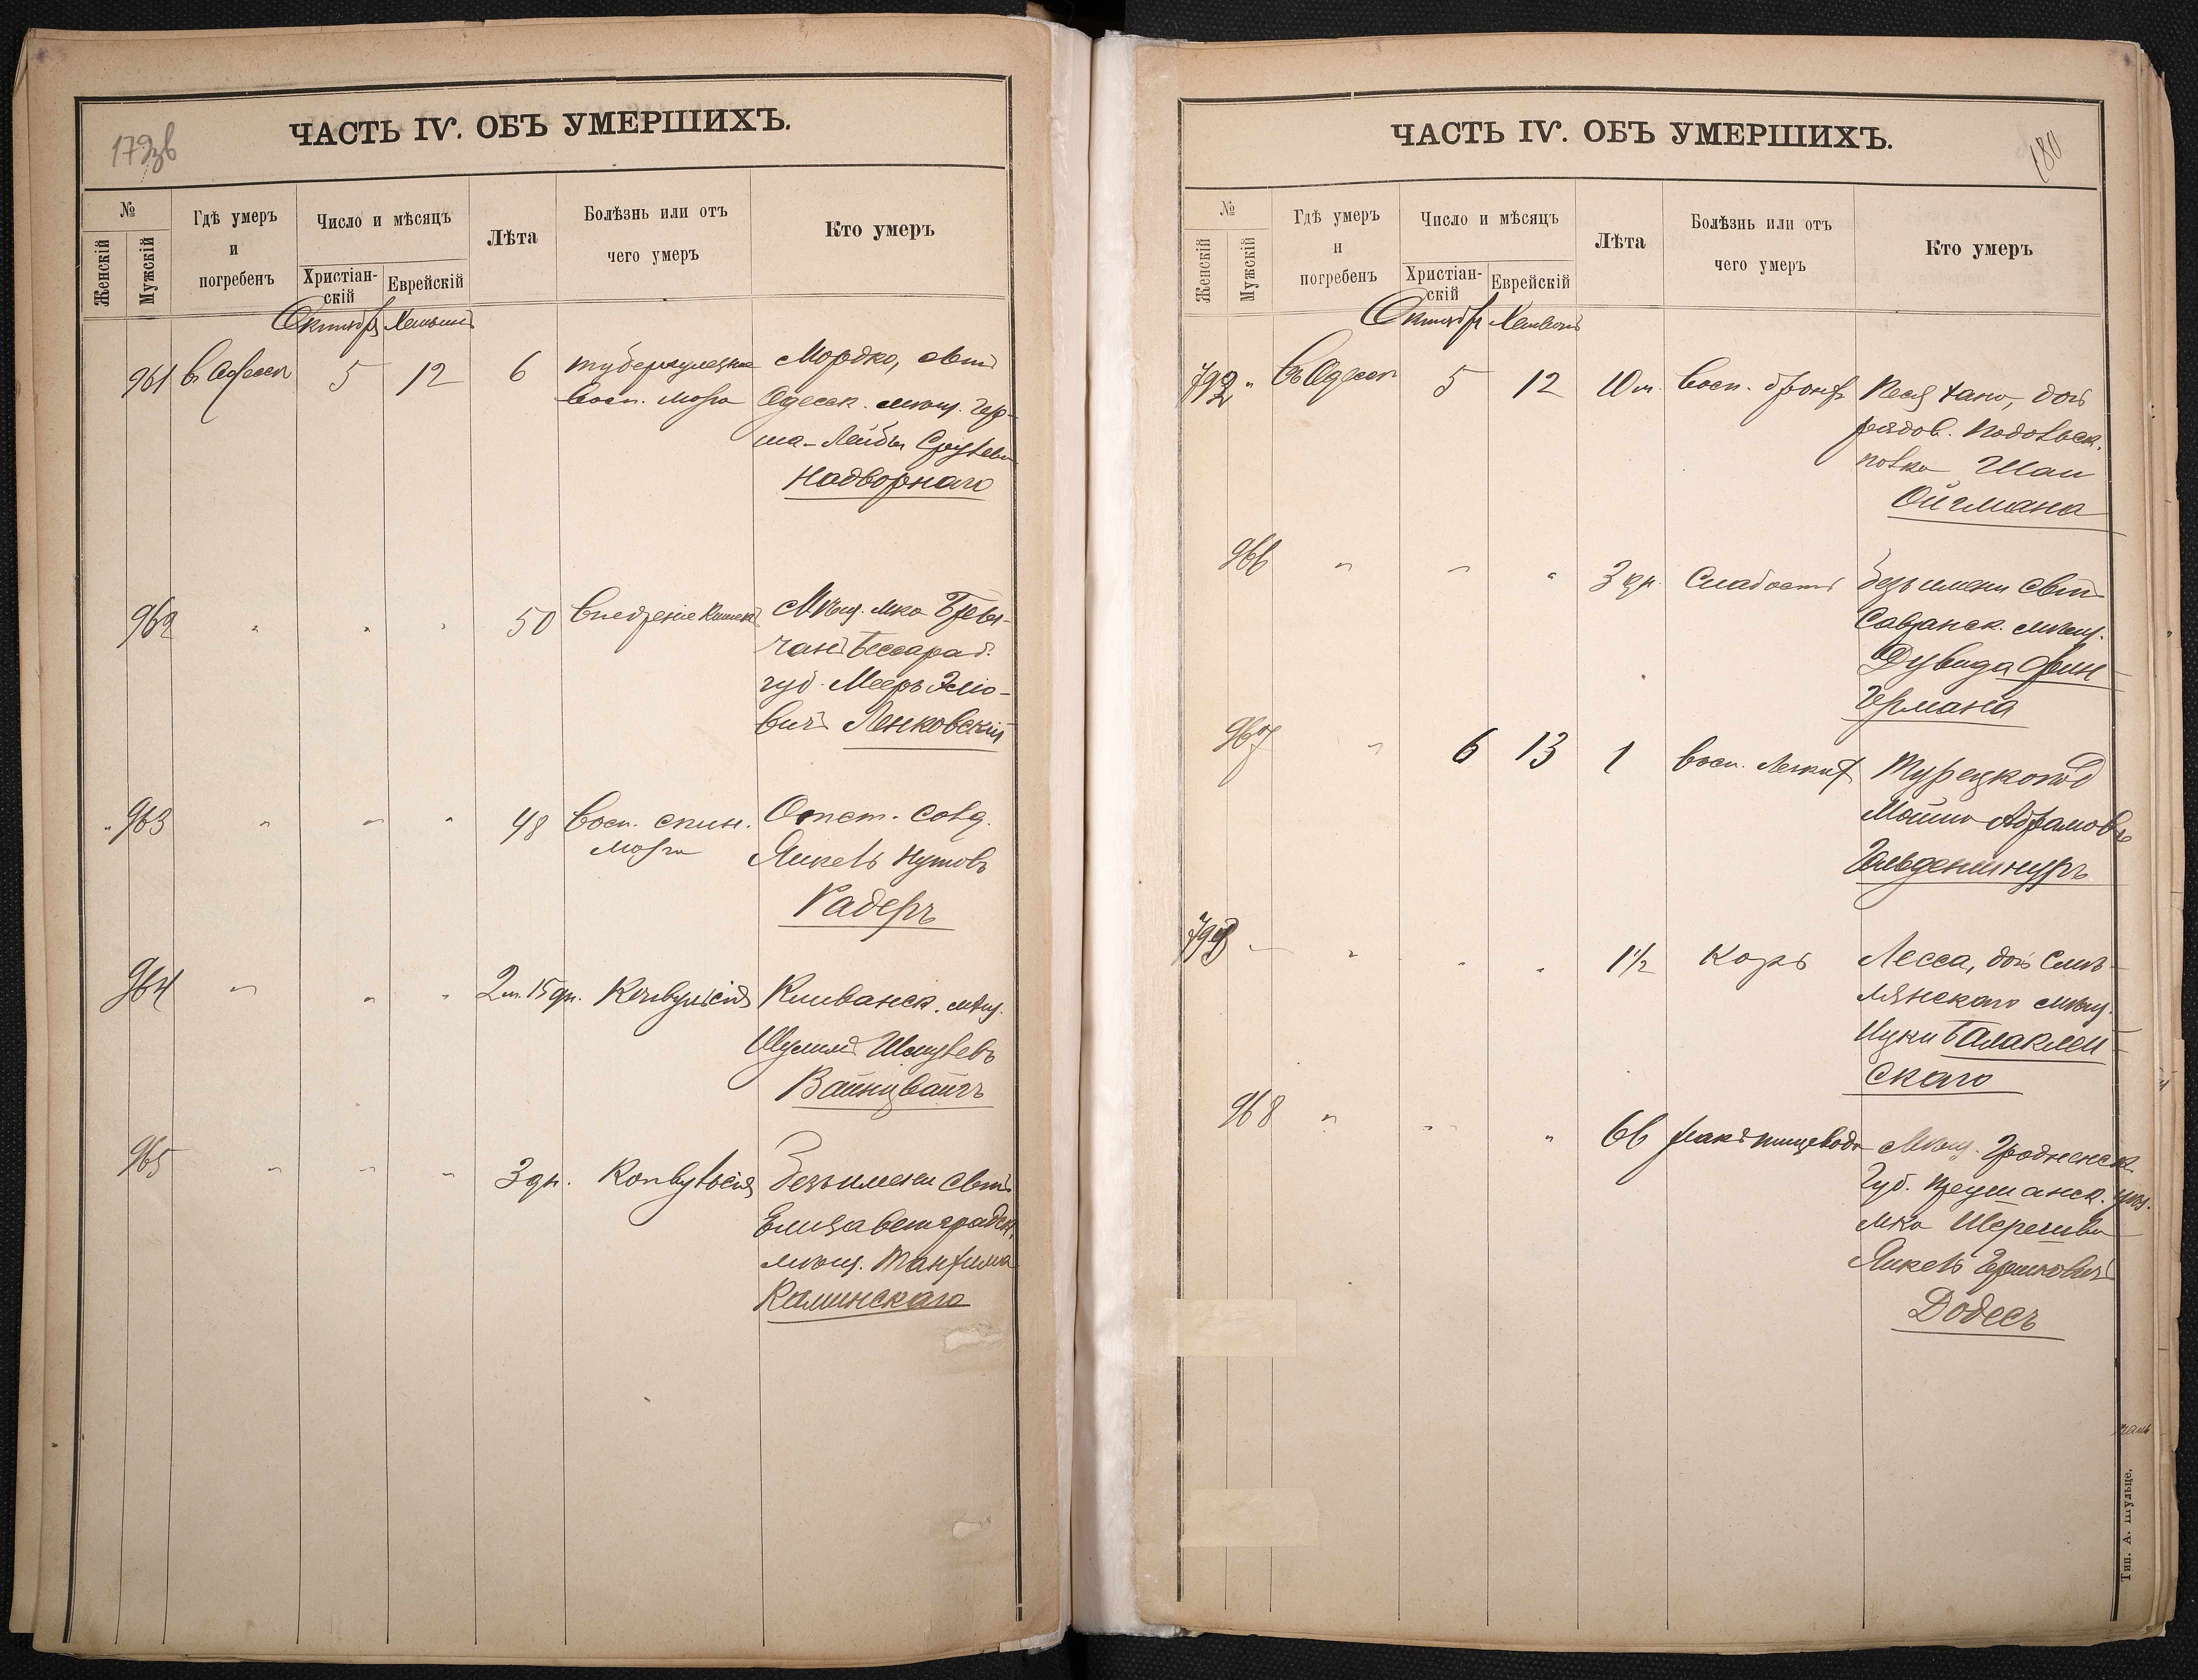 179об
ЧАСТЬ IV. ОБЪ УМЕРШИХЪ.
№
Женскій
Мужскій
Гдѣ умеръ
и
погребенъ
Число и мѣсяцъ
Христіан-
скій
Еврейскій
Лѣта
Болѣзнь или отъ
чего умеръ
Кто умеръ
Октябр Хешвонъ
961 въ Одессѣ 5 12 6 туберкулезное Мордко, сынъ
Восп. мозга Одесск. мѣщ. Гер-
ша-Лейбы Срулева
Надворнаго
962 " " " 50 Внедреніе кишекъ Мѣщ. мка Бри-
чанъ Бессараб.
губ. Мееръ Эліо-
вичъ Ленковскій
963 " " " 48 Восп. спин. Отст. солд.
мозга Янкель Нутовъ
Радеръ
964 " " " 2 м. 15 дн. Конвульсія Кишванск. мѣщ.
Шулимъ Шмулевъ
Вайнцвайгъ
965 " " " 3 дн. Конвульсія Безъ имени сынъ
Елизаветградск.
мѣщ. Танхума
Каминскаго
180
ЧАСТЬ IV. ОБЪ УМЕРШИХЪ.
№
Женскій
Мужскій
Гдѣ умеръ
и
погребенъ
Число и мѣсяцъ
Христіан-
скій
Еврейскій
Лѣта
Болѣзнь или отъ
чего умеръ
Кто умеръ
Октябр Хешвонъ
792 " Въ Одессѣ 5 12 10 м. Восп. бронх Песя Хана, дочь
рядов. Подольск.
полка Шаи
Ойгмана
966 " " " 3 дн. Слабость Безъ имени сынъ
Савранск. мѣщ.
Дувида Фин-
германа
967 " 6 13 1 Восп. Легких Турецкопод
Мойше Абрамовъ
Гольденшнуръ
793 " " " 1½ Корь Лесса, дочь Смѣ-
лянскаго мѣщ.
Ицки Балаклей-
скаго
968 " " " 66 Ракъ пищевода Мѣщ. Гродненск.
Губ. Пружанск. уѣз.
мка Шерешева
Янкель Гершковичъ
Додесъ
Тип. А. Шульце.